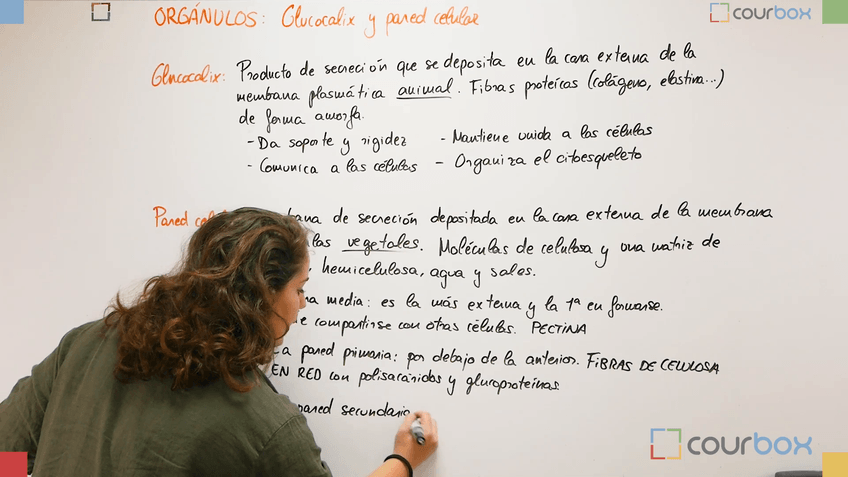 ORGÁNULOS: Glucocalix y pared celular
courbox
Glucocalix: Producto de secreción que se deposita en la cara externa de la
membrana plasmática animal. Fibras proteícas (colágeno, elastina...)
de forma amorfa.
- Da soporte y rigidez - Mantiene unida a las células
- Comunica a las células - Organiza el citoesqueleto
Pared de secreción depositada en la cara externa de la membrana
las vegetales. Moléculas de celulosa y una matriz de
hemicelulosa, agua y sales.
media: es la más externa y la 1ª en formarse.
compartirse con otras células. PECTINA
pared primaria: por debajo de la anterior. FIBRAS DE CELULOSA
EN RED con polisacáridos y glucoproteínas
pared secundaria
courbox